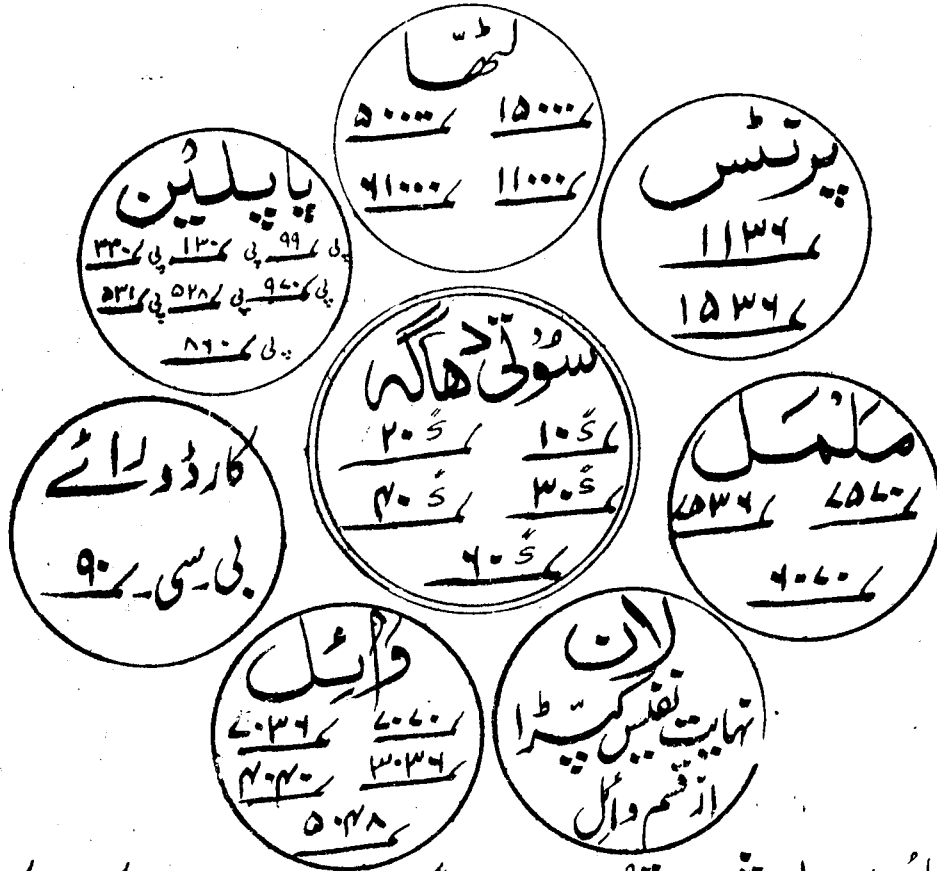 لٹھّا
؀۱۵۰۰۰ ؀۵۰۰۰۰
؀۱۱۰۰۰ ؀۶۱۰۰۰
پرنٹس
؀۱۱۳۶
؀۱۵۳۶
پاپلین
پی ؀۹۹ پی ؀۱۳۰ پی ؀۳۳۰
پی ؀۹۷۰ پی ؀۵۲۸ پی ؀۵۳۱
پی ؀۸۶۰
سُوتی دھاگہ
؀۱۰ s ؀۲۰ s
؀۳۰ s ؀۴۰ s
؀۶۰ s
ململ
؀۷۵۷۰ ؀۷۵۳۶
؀۶۰۷۰
کارڈورائے
بی۔سی۔ ؀۹۰
وائِل
؀۷۰۷۰ ؀۷۰۳۶
؀۳۰۳۶ ؀۴۰۴۰
؀۵۰۴۸
لان
نہایت نفیس کپڑا
از قسم وائل